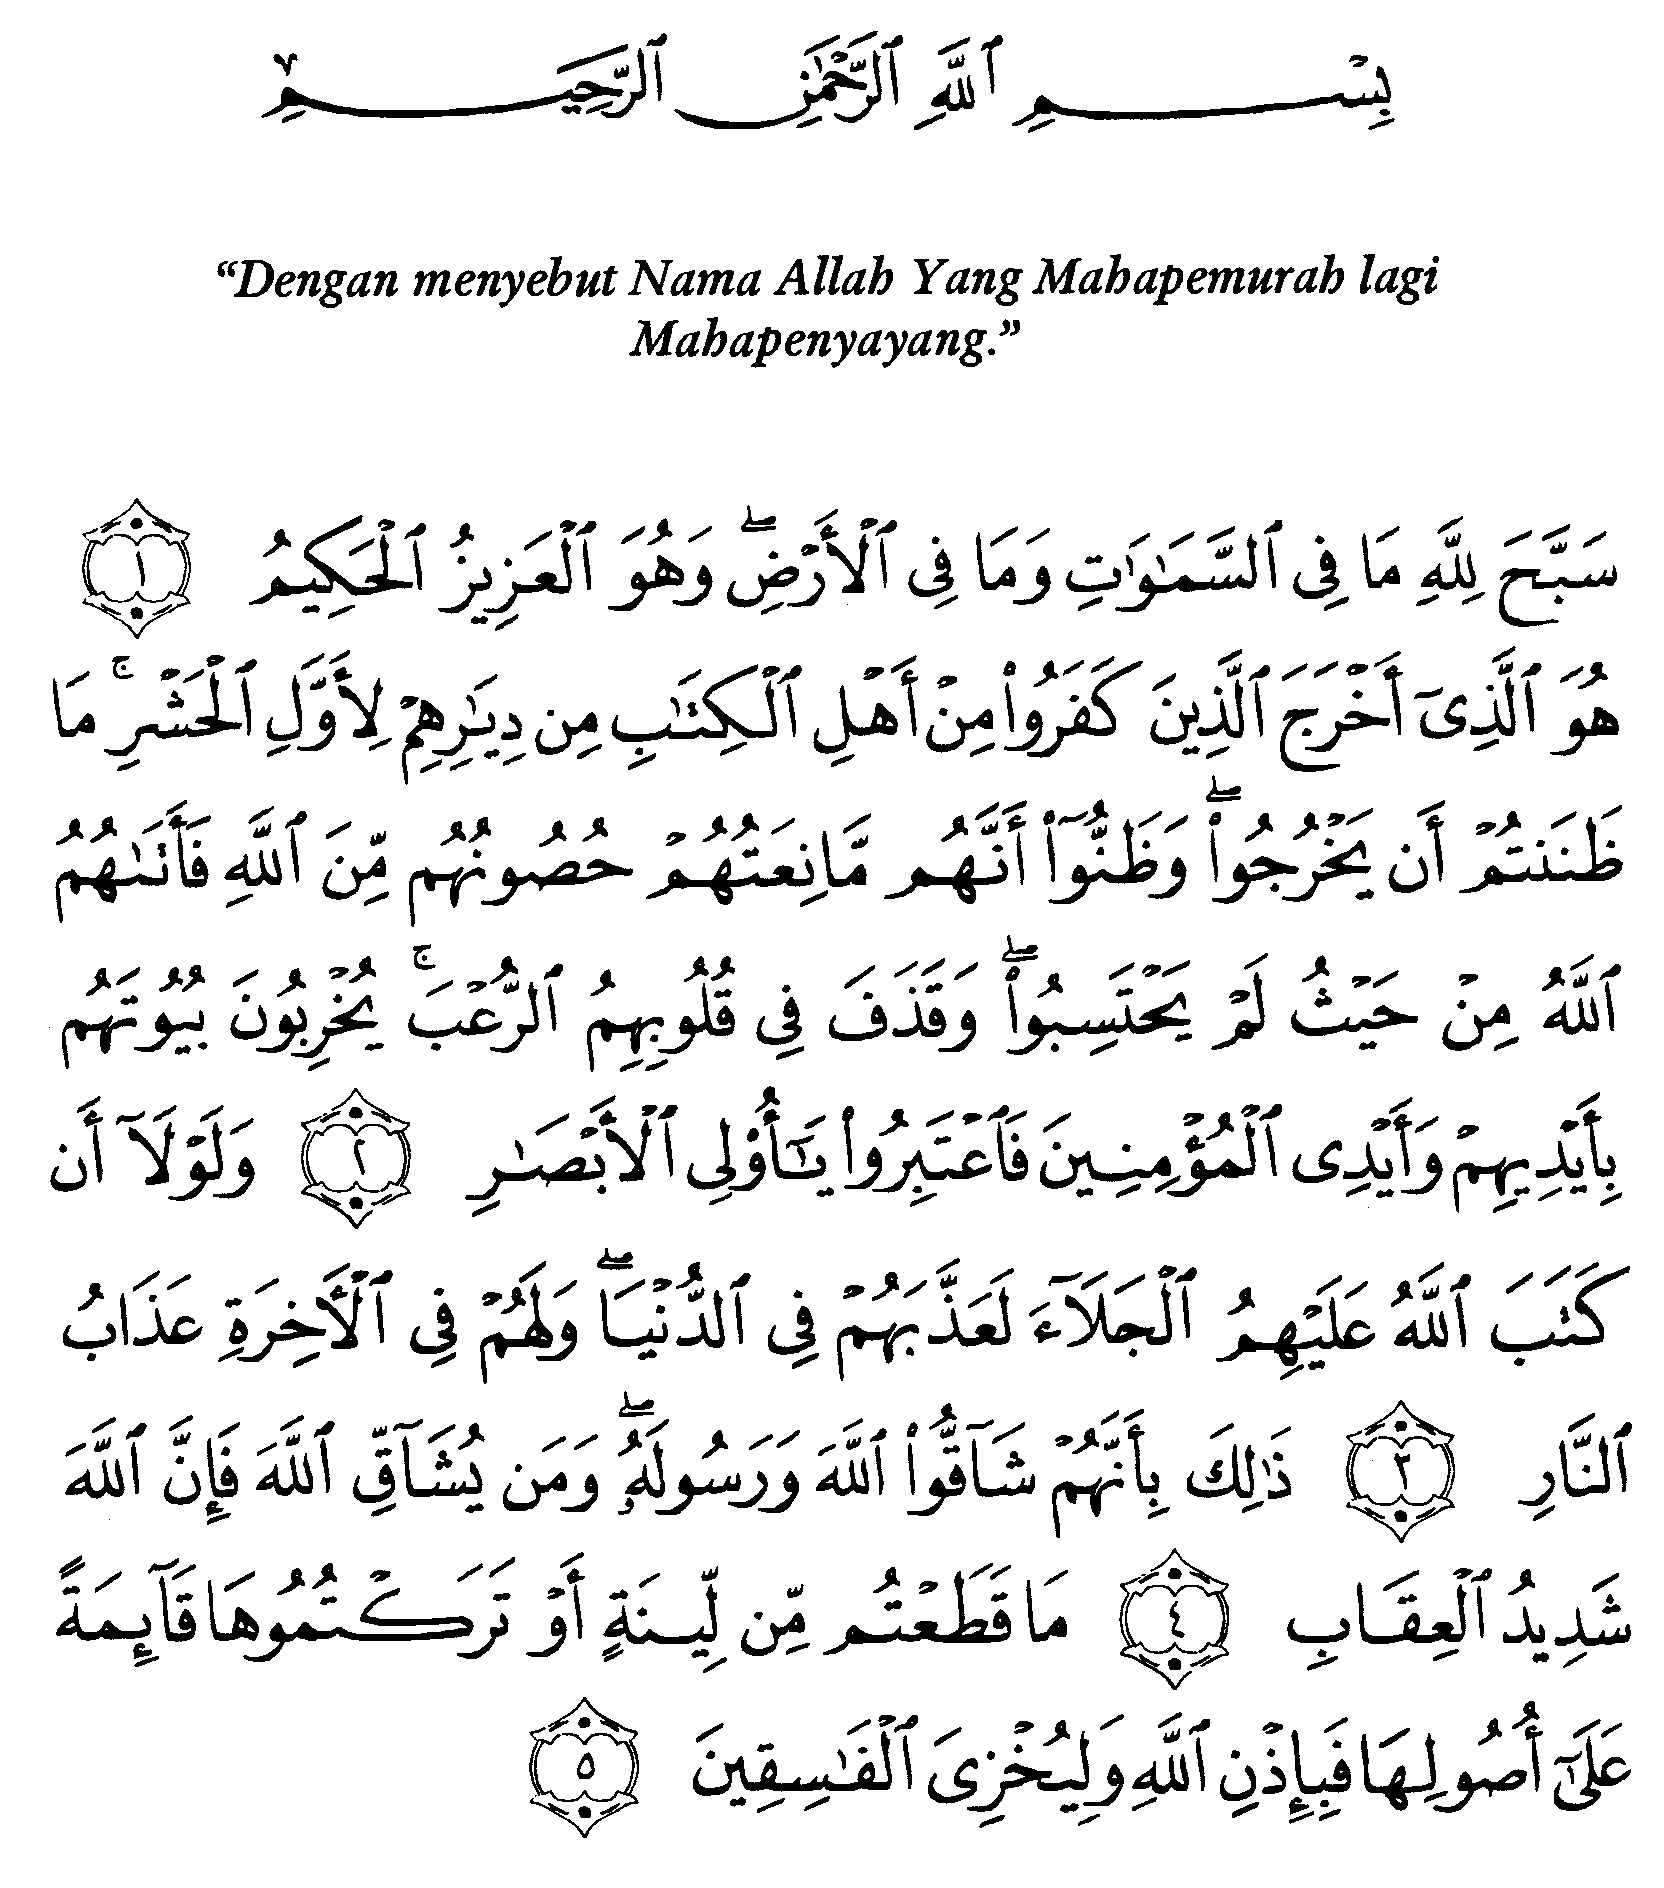 بِسْمِ ٱللَّهِ ٱلرَّحْمَٰنِ ٱلرَّحِيمِ
“Dengan menyebut Nama Allah Yang Mahapemurah lagi
Mahapenyayang.”
سَبَّحَ لِلَّهِ مَا فِى ٱلسَّمَٰوَٰتِ وَمَا فِى ٱلْأَرْضِ ۖ وَهُوَ ٱلْعَزِيزُ ٱلْحَكِيمُ ١
هُوَ ٱلَّذِىٓ أَخْرَجَ ٱلَّذِينَ كَفَرُوا۟ مِنْ أَهْلِ ٱلْكِتَٰبِ مِن دِيَٰرِهِمْ لِأَوَّلِ ٱلْحَشْرِ ۚ مَا
ظَنَنتُمْ أَن يَخْرُجُوا۟ ۖ وَظَنُّوٓا۟ أَنَّهُم مَّانِعَتُهُمْ حُصُونُهُم مِّنَ ٱللَّهِ فَأَتَىٰهُمُ
ٱللَّهُ مِنْ حَيْثُ لَمْ يَحْتَسِبُوا۟ ۖ وَقَذَفَ فِى قُلُوبِهِمُ ٱلرُّعْبَ ۚ يُخْرِبُونَ بُيُوتَهُم
بِأَيْدِيهِمْ وَأَيْدِى ٱلْمُؤْمِنِينَ فَٱعْتَبِرُوا۟ يَٰٓأُو۟لِى ٱلْأَبْصَٰرِ ٢ وَلَوْلَآ أَن
كَتَبَ ٱللَّهُ عَلَيْهِمُ ٱلْجَلَآءَ لَعَذَّبَهُمْ فِى ٱلدُّنْيَا ۖ وَلَهُمْ فِى ٱلْءَاخِرَةِ عَذَابُ
ٱلنَّارِ ٣ ذَٰلِكَ بِأَنَّهُمْ شَآقُّوا۟ ٱللَّهَ وَرَسُولَهُۥ ۖ وَمَن يُشَآقِّ ٱللَّهَ فَإِنَّ ٱللَّهَ
شَدِيدُ ٱلْعِقَابِ ٤ مَا قَطَعْتُم مِّن لِّينَةٍ أَوْ تَرَكْتُمُوهَا قَآئِمَةً
عَلَىٰٓ أُصُولِهَا فَبِإِذْنِ ٱللَّهِ وَلِيُخْزِىَ ٱلْفَٰسِقِينَ ٥